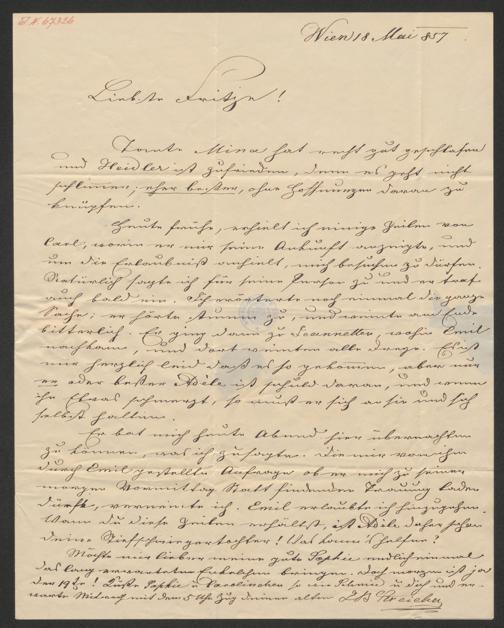 I.N. 67326
Wien 18 Mai 857
Liebste Fritze!
Tante Mina hat recht gut geschlafen
und Heidler ist zufrieden, denn es geht nicht
schlimer; eher besser, ohne Hoffnungen daran zu
knüpfen.
Heute frühe, erhielt ich einige Zeilen von
Carl, worin er mir seine Ankunft anzeigte, und
um die Erlaubniß anhielt, mich besuchen zu dürfen.
Natürlich sagte ich für seine Person zu und er traf
auch bald ein. Ich erörterte noch einmal die ganze
Sache; er hörte stumm zu, und weinte am Ende
bitterlich. Er ging dann zu Jeannetten, wohin Emil
nachkam, und dort weinten alle drey. Es ist
mir herzlich leid daß es so gekommen, aber nur
er oder besser Adèle ist schuld daran, und wenn
ihn Etwas schmerzt, so muß er sich an sie und sich
selbst halten.
Er bat mich heute Abend hier übernachten
zu können, was ich zusagte. Die mir von ihm
durch Emil gestellte Anfrage ob er mich zu seiner
morgen Vormittag Statt findenden Trauung laden
dürfte, verneinte ich. Emil erlaubte ich hinzugehen.
Wann du diese Zeilen erhältst, ist Adèle daher schon
deine Stiefschwiegertochter! Was kann's helfen?
Möchte mir lieber meine gute Sophie endlich einmal
das lang erwartete Enkelchen bringen. Doch morgen ist ja
der 19te! Küsse Sophie u Carolinchen so wie u dich und er-
warte Mitwoch mit dem 5 Uhr Zug deiner alten JB Streicher